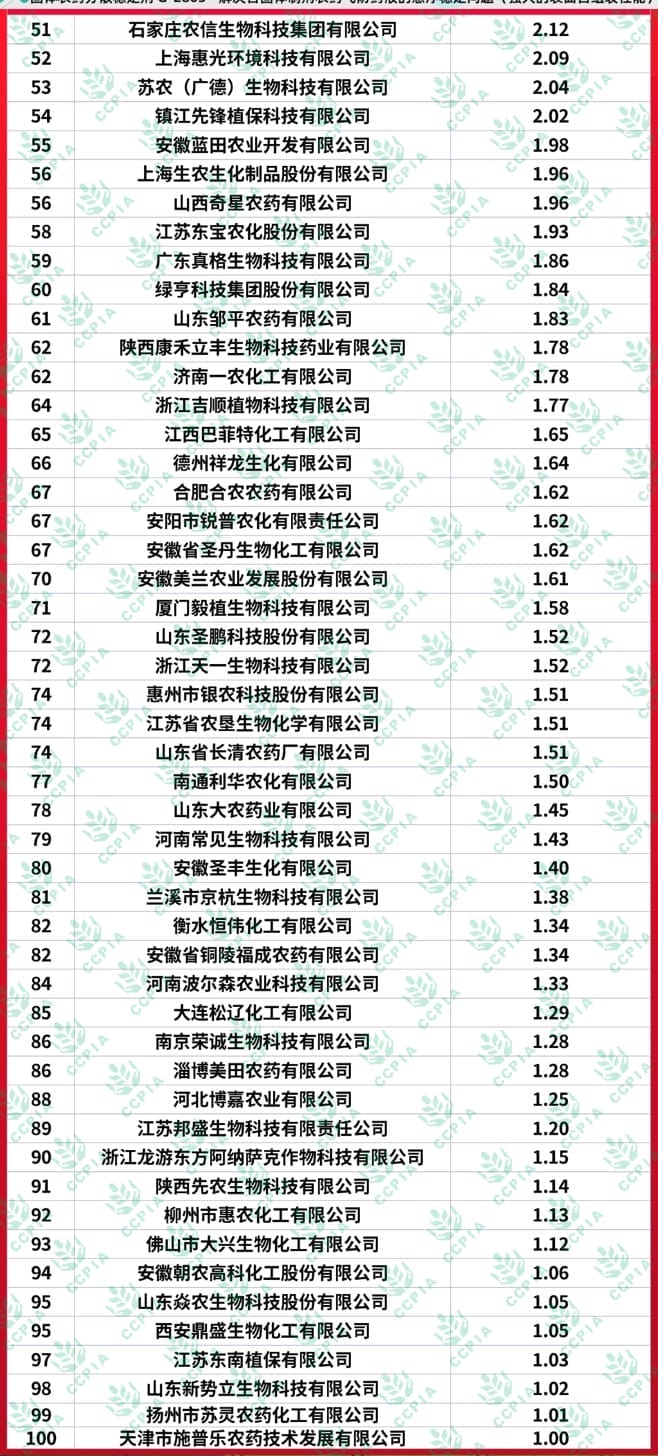 51 石家庄农信生物科技集团有限公司 2.12
52 上海惠光环境科技有限公司 2.09
53 苏农（广德）生物科技有限公司 2.04
54 镇江先锋植保科技有限公司 2.02
55 安徽蓝田农业开发有限公司 1.98
56 上海生农生化制品股份有限公司 1.96
56 山西奇星农药有限公司 1.96
58 江苏东宝农化股份有限公司 1.93
59 广东真格生物科技有限公司 1.86
60 绿亨科技集团股份有限公司 1.84
61 山东邹平农药有限公司 1.83
62 陕西康禾立丰生物科技药业有限公司 1.78
62 济南一农化工有限公司 1.78
64 浙江吉顺植物科技有限公司 1.77
65 江西巴菲特化工有限公司 1.65
66 德州祥龙生化有限公司 1.64
67 合肥合农农药有限公司 1.62
67 安阳市锐普农化有限责任公司 1.62
67 安徽省圣丹生物化工有限公司 1.62
70 安徽美兰农业发展股份有限公司 1.61
71 厦门毅植生物科技有限公司 1.58
72 山东圣鹏科技股份有限公司 1.52
72 浙江天一生物科技有限公司 1.52
74 惠州市银农科技股份有限公司 1.51
74 江苏省农垦生物化学有限公司 1.51
74 山东省长清农药厂有限公司 1.51
77 南通利华农化有限公司 1.50
78 山东大农药业有限公司 1.45
79 河南常见生物科技有限公司 1.43
80 安徽圣丰生化有限公司 1.40
81 兰溪市京杭生物科技有限公司 1.38
82 衡水恒伟化工有限公司 1.34
82 安徽省铜陵福成农药有限公司 1.34
84 河南波尔森农业科技有限公司 1.33
85 大连松辽化工有限公司 1.29
86 南京荣诚生物科技有限公司 1.28
86 淄博美田农药有限公司 1.28
88 河北博嘉农业有限公司 1.25
89 江苏邦盛生物科技有限责任公司 1.20
90 浙江龙游东方阿纳萨克作物科技有限公司 1.15
91 陕西先农生物科技有限公司 1.14
92 柳州市惠农化工有限公司 1.13
93 佛山市大兴生物化工有限公司 1.12
94 安徽朝农高科化工股份有限公司 1.06
95 山东焱农生物科技股份有限公司 1.05
95 西安鼎盛生物化工有限公司 1.05
97 江苏东南植保有限公司 1.03
98 山东新势立生物科技有限公司 1.02
99 扬州市苏灵农药化工有限公司 1.01
100 天津市施普乐农药技术发展有限公司 1.00
CCPIA